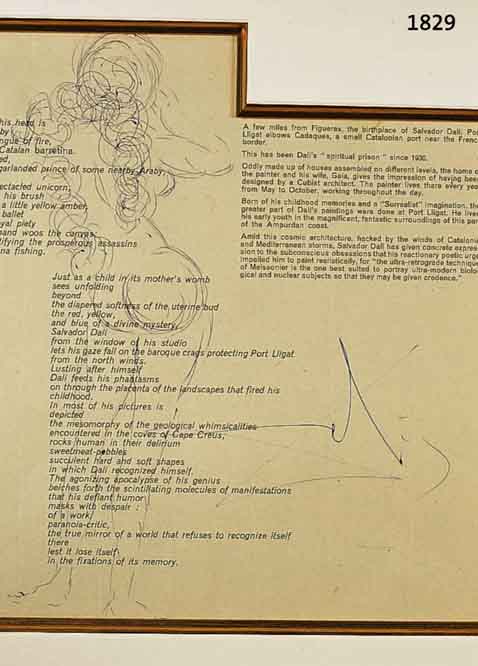 1829
his head is
by
ngue of fire,
Catalan barretina.
ed,
garlanded prince of some nearby Araby,
ectacled unicorn,
his brush
a little yellow amber,
ballet
yal piety
hand woos the canvas
tifying the prosperous assassins
na fishing.
Just as a child in its mother's womb
sees unfolding
beyond
the diapered softness of the uterine bud
the red, yellow,
and blue of a divine mystery,
Salvador Dali
from the window of his studio
lets his gaze fall on the baroque crags protecting Port Lligat
from the north winds.
Lusting after himself
Dali feeds his phantasms
on through the placenta of the landscapes that fired his
childhood.
In most of his pictures is
depicted
the mesomorphy of the geological whimsicalities
encountered in the coves of Cape Creus,
rocks human in their delirium
sweetmeat-pebbles
succulent hard and soft shapes
in which Dali recognized himself.
The agonizing apocalypse of his genius
belches forth the scintillating molecules of manifestations
that his defiant humor
masks with despair :
of a work
paranoia-critic,
the true mirror of a world that refuses to recognize itself
there
lest it lose itself
in the fixations of its memory.
A few miles from Figueras, the birthplace of Salvador Dali, Por
Lligat elbows Cadaques, a small Catalonian port near the Frenc
border.
This has been Dali's " spiritual prison " since 1930.
Oddly made up of houses assembled on different levels, the home o
the painter and his wife, Gala, gives the impression of having been
designed by a Cubist architect. The painter lives there every yea
from May to October, working throughout the day.
Born of his childhood memories and a "Surrealist" imagination, the
greater part of Dali's paintings were done at Port Lligat. He lived
his early youth in the magnificent, fantastic surroundings of this par
of the Ampurdan coast.
Amid this cosmic architecture, hacked by the winds of Catalonia
and Mediterranean storms, Salvador Dali has given concrete expres-
sion to the subconscious obsessions that his reactionary poetic urge
impelled him to paint realistically, for "the ultra-retrograde technique
of Meissonier is the one best suited to portray ultra-modern biolo-
gical and nuclear subjects so that they may be given credence."